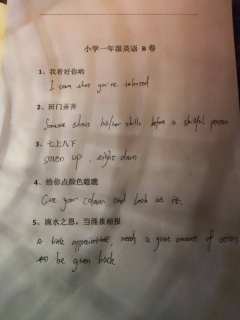 小学一年级英语 B 卷
1、我看好你哟
I can see you're talented
2、班门弄斧
Someone shows his/her skills before a skilful person
3、七上八下
seven up, eight down
4、给你点颜色瞧瞧
Give your colour and look at it.
5、滴水之恩，当涌泉相报
a little appreciation, needs a great amount of
to be given back